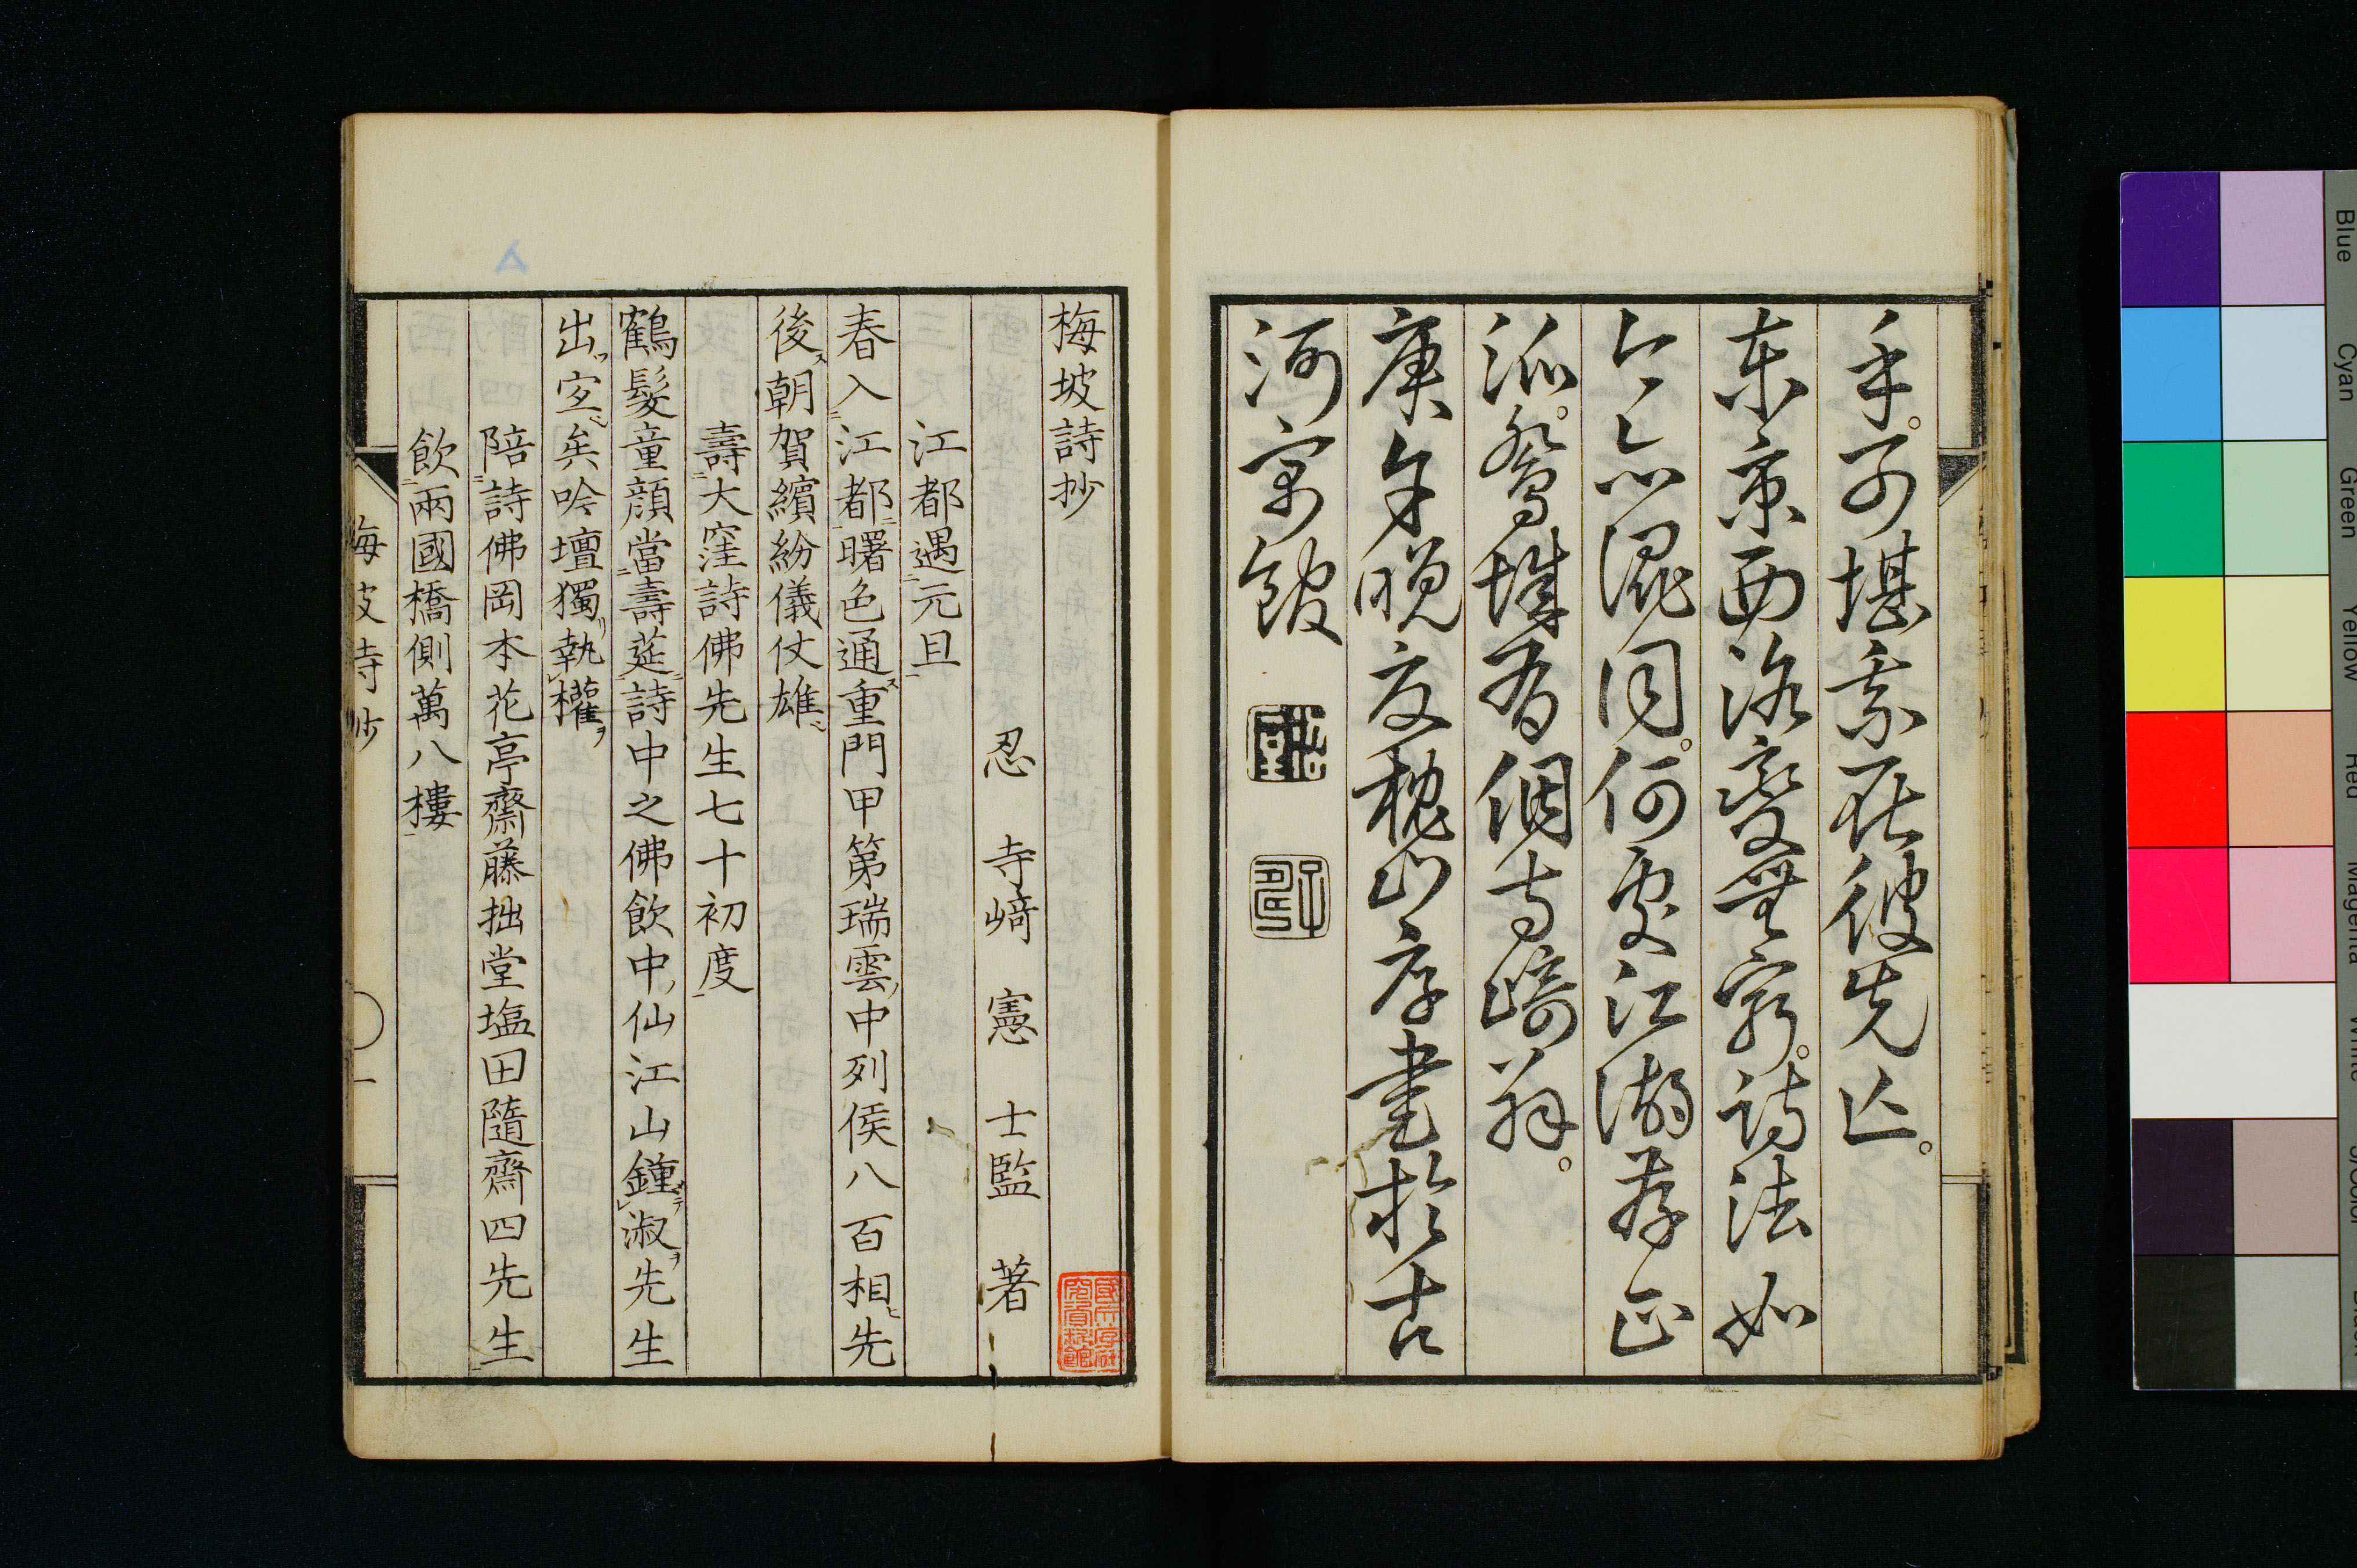 手。不堪素在彼先亡。
東京西洛變無窮。詩法如
今亦混同。何處江湖存正
派。鴛城有個寺崎翁。
庚午晚夏槐山彦書於古
河寓館
梅坡詩抄
忍 寺﨑 憲 士監 著
江都遇元旦
春入江都曙色通重門甲第瑞雲中列侯八百相先
後朝賀繽紛儀仗雄
壽大窪詩佛先生七十初度
鶴髮童顔當壽莚詩中之佛飲中仙江山鍾淑先生
出宜矣吟壇獨執權
陪詩佛岡本花亭齋藤拙堂塩田隨齋四先生
飲兩國橋側萬八樓
梅坡詩抄
一
Blue
Cyan
Green
Yellow
Red
Magenta
White
3/Color
Black